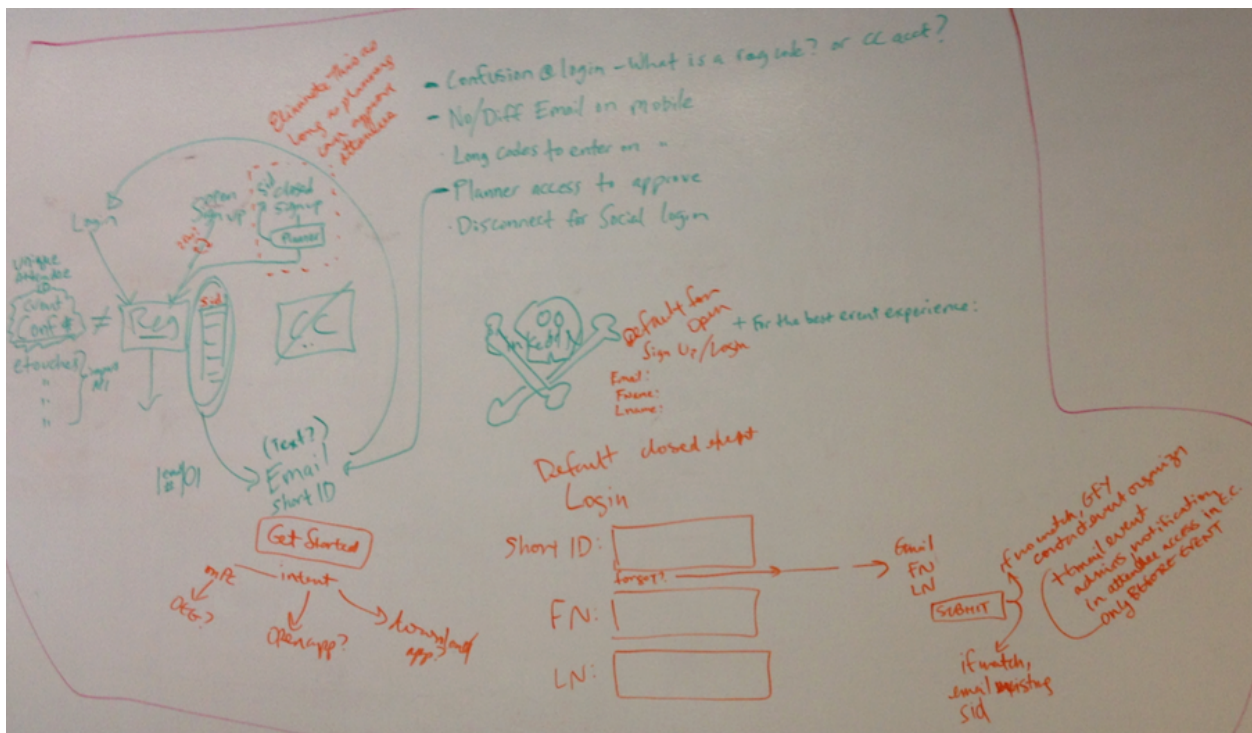 Eliminate this as
long as planners
can approve
attendees
- Confusion @ login - What is a reg code? or CC acct?
- No/Diff Email on mobile
· Long codes to enter on "
- Planner access to approve
· Disconnect for Social login
Login
open
Sign up
closed
signup
Planner
unique
attendee
ID
Conf #
≠
Reg
sid
CC
etouches
"
"
"
API
LinkedIn
Default for
open
Sign Up/Login
Email:
Fname:
Lname:
+ For the best event experience:
(Text?)
Email
Short ID
Get Started
intent
Open app?
download
app?
Default closed event
Login
Short ID:
forgot?
FN:
LN:
Email
FN
LN
SUBMIT
if no match, GFY
contact event organizer
++Email event
admins notification
in attendee access in EC
only BEFORE EVENT
if match,
email existing
sid